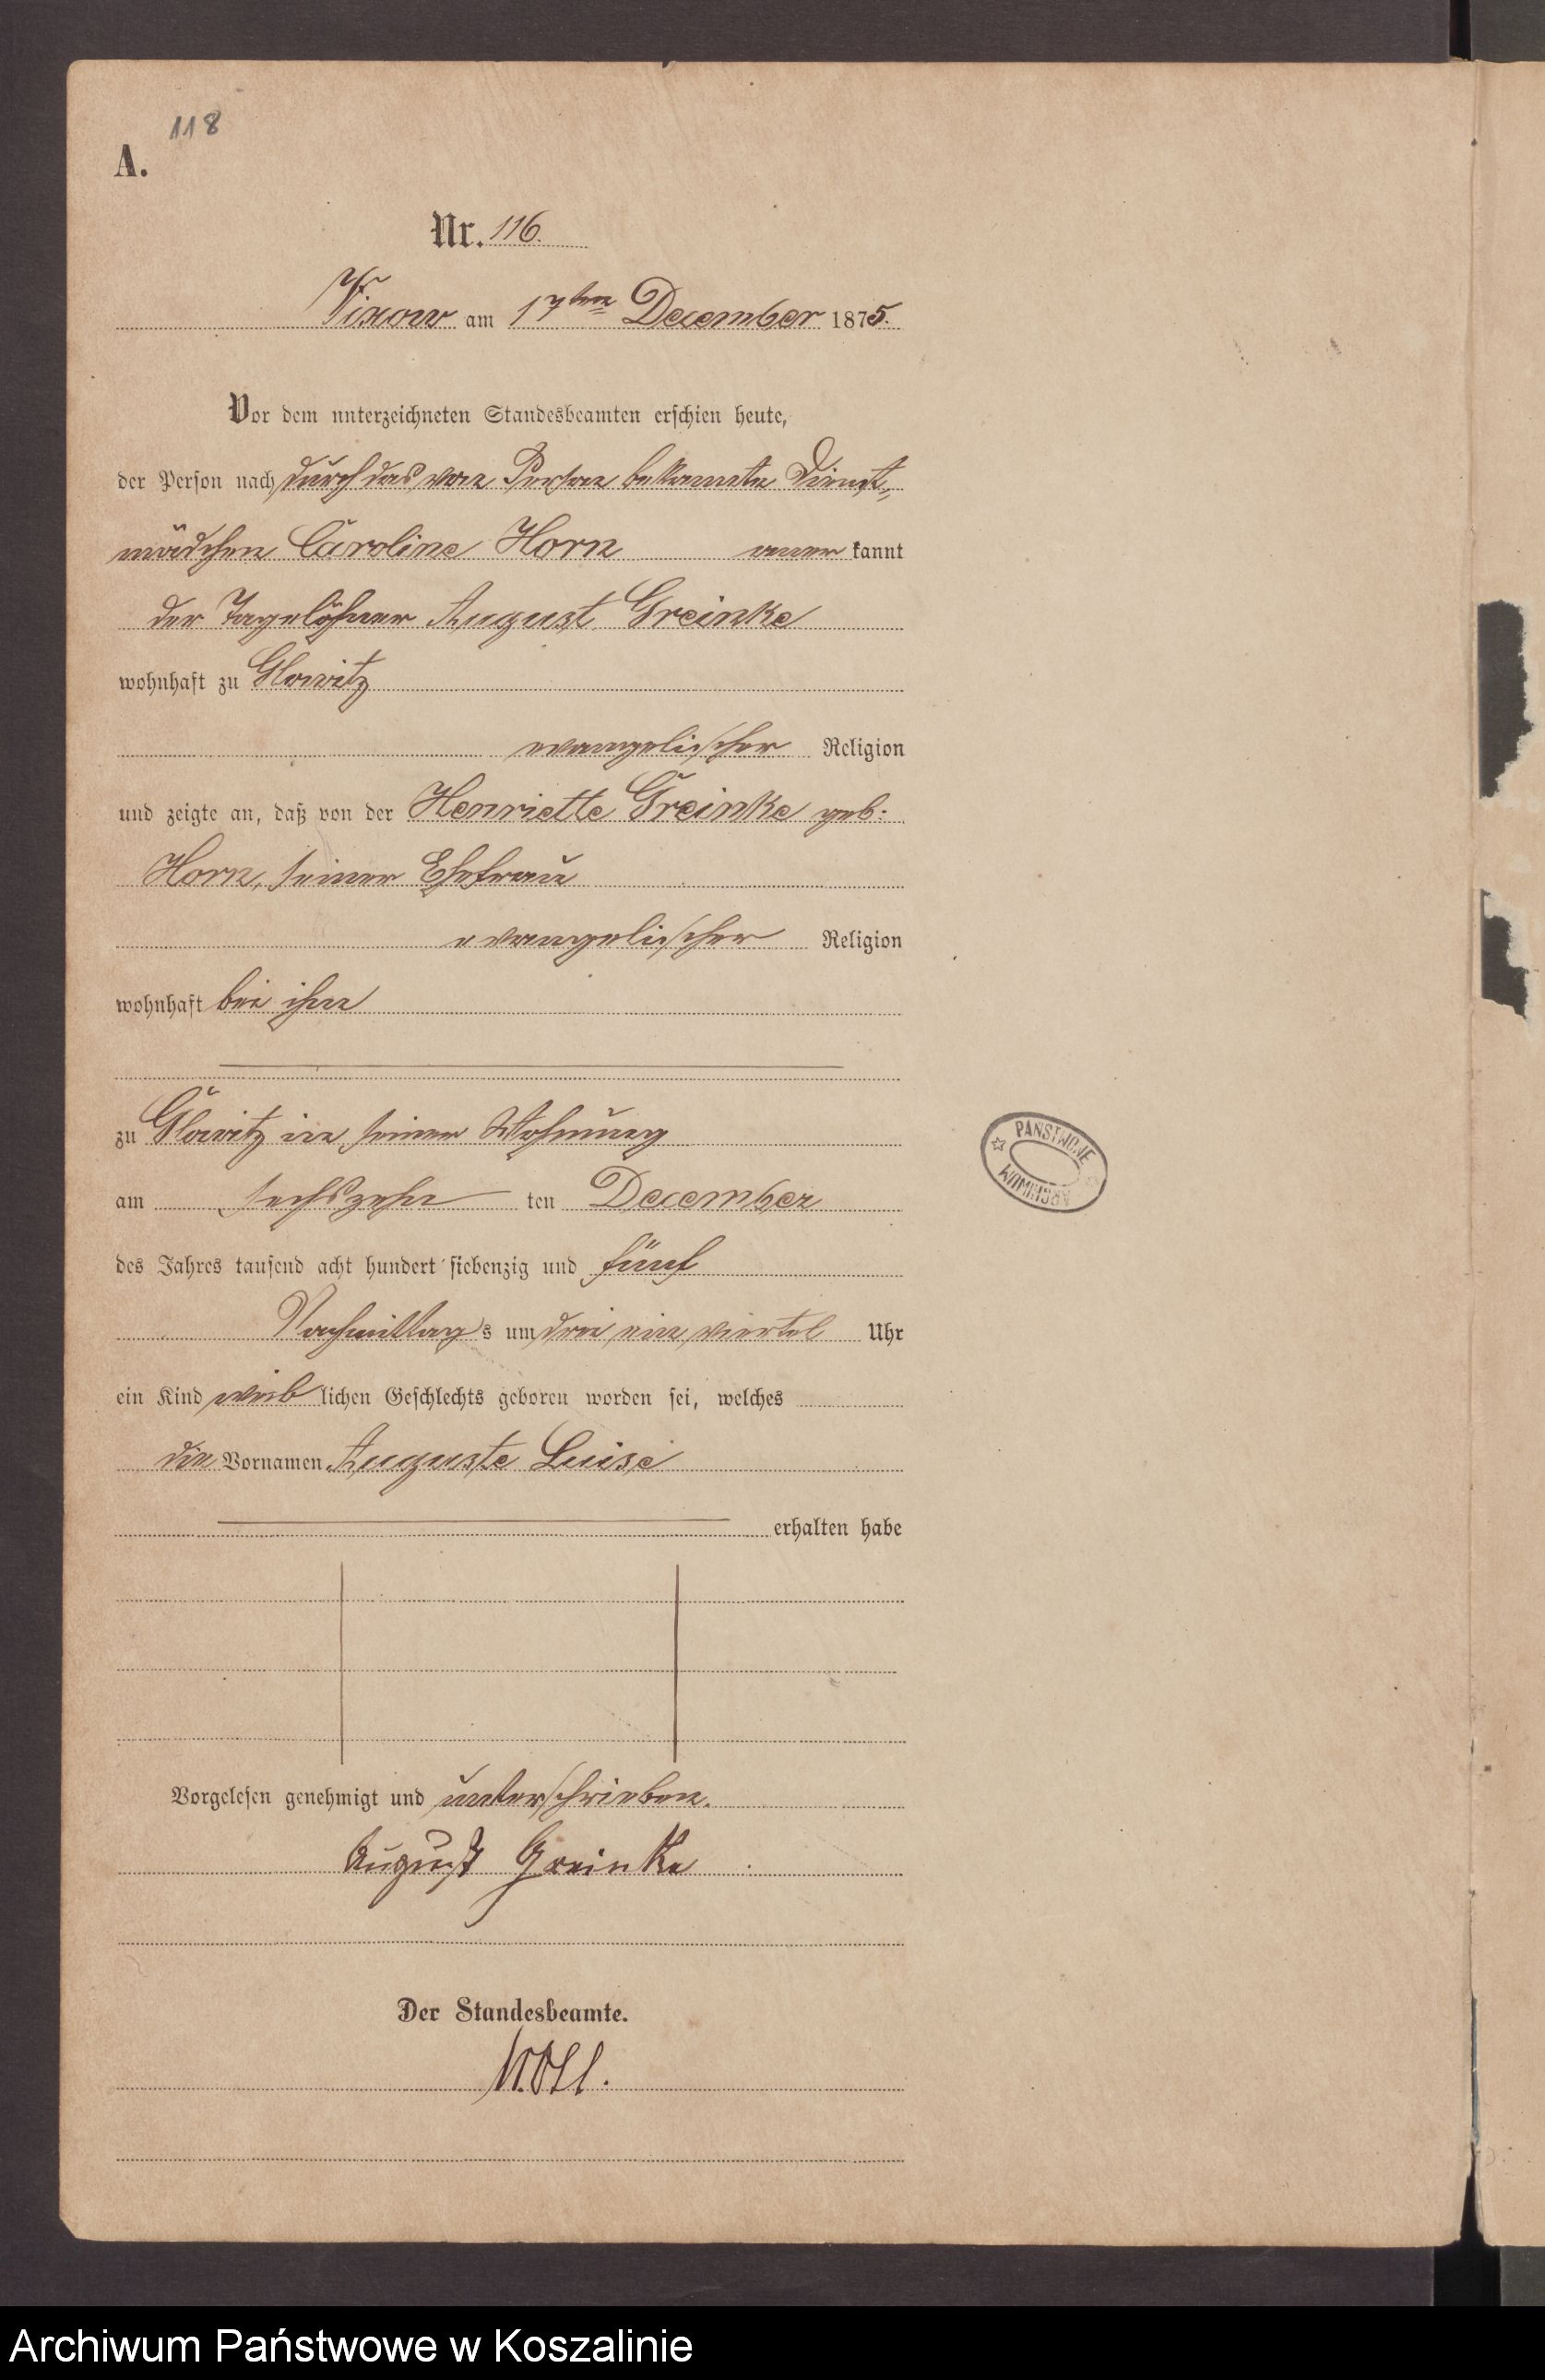 118
A.
Nr. 116.
Vixow am 17ten December 1875.
Vor dem unterzeichneten Standesbeamten erschien heute,
der Person nach durch das von Person bekannte Dienst-
mädchen Caroline Horn anerkannt
der Tagelöhner August Greinke
wohnhaft zu Glowitz
evangelischer Religion
und zeigte an, daß von der Henriette Greinke geb:
Horn, seiner Ehefrau
evangelischer Religion
wohnhaft bei ihm
zu Glowitz in seiner Wohnung
am sechszehn ten December
des Jahres tausend acht hundert siebenzig und fünf
Nachmittags um drei ein viertel Uhr
ein Kind weiblichen Geschlechts geboren worden sei, welches
die Vornamen Auguste Luise
erhalten habe
Vorgelesen genehmigt und unterschrieben.
August Greinke
Der Standesbeamte.
PAŃSTWOWE
ARCHIWUM
Archiwum Państwowe w Koszalinie